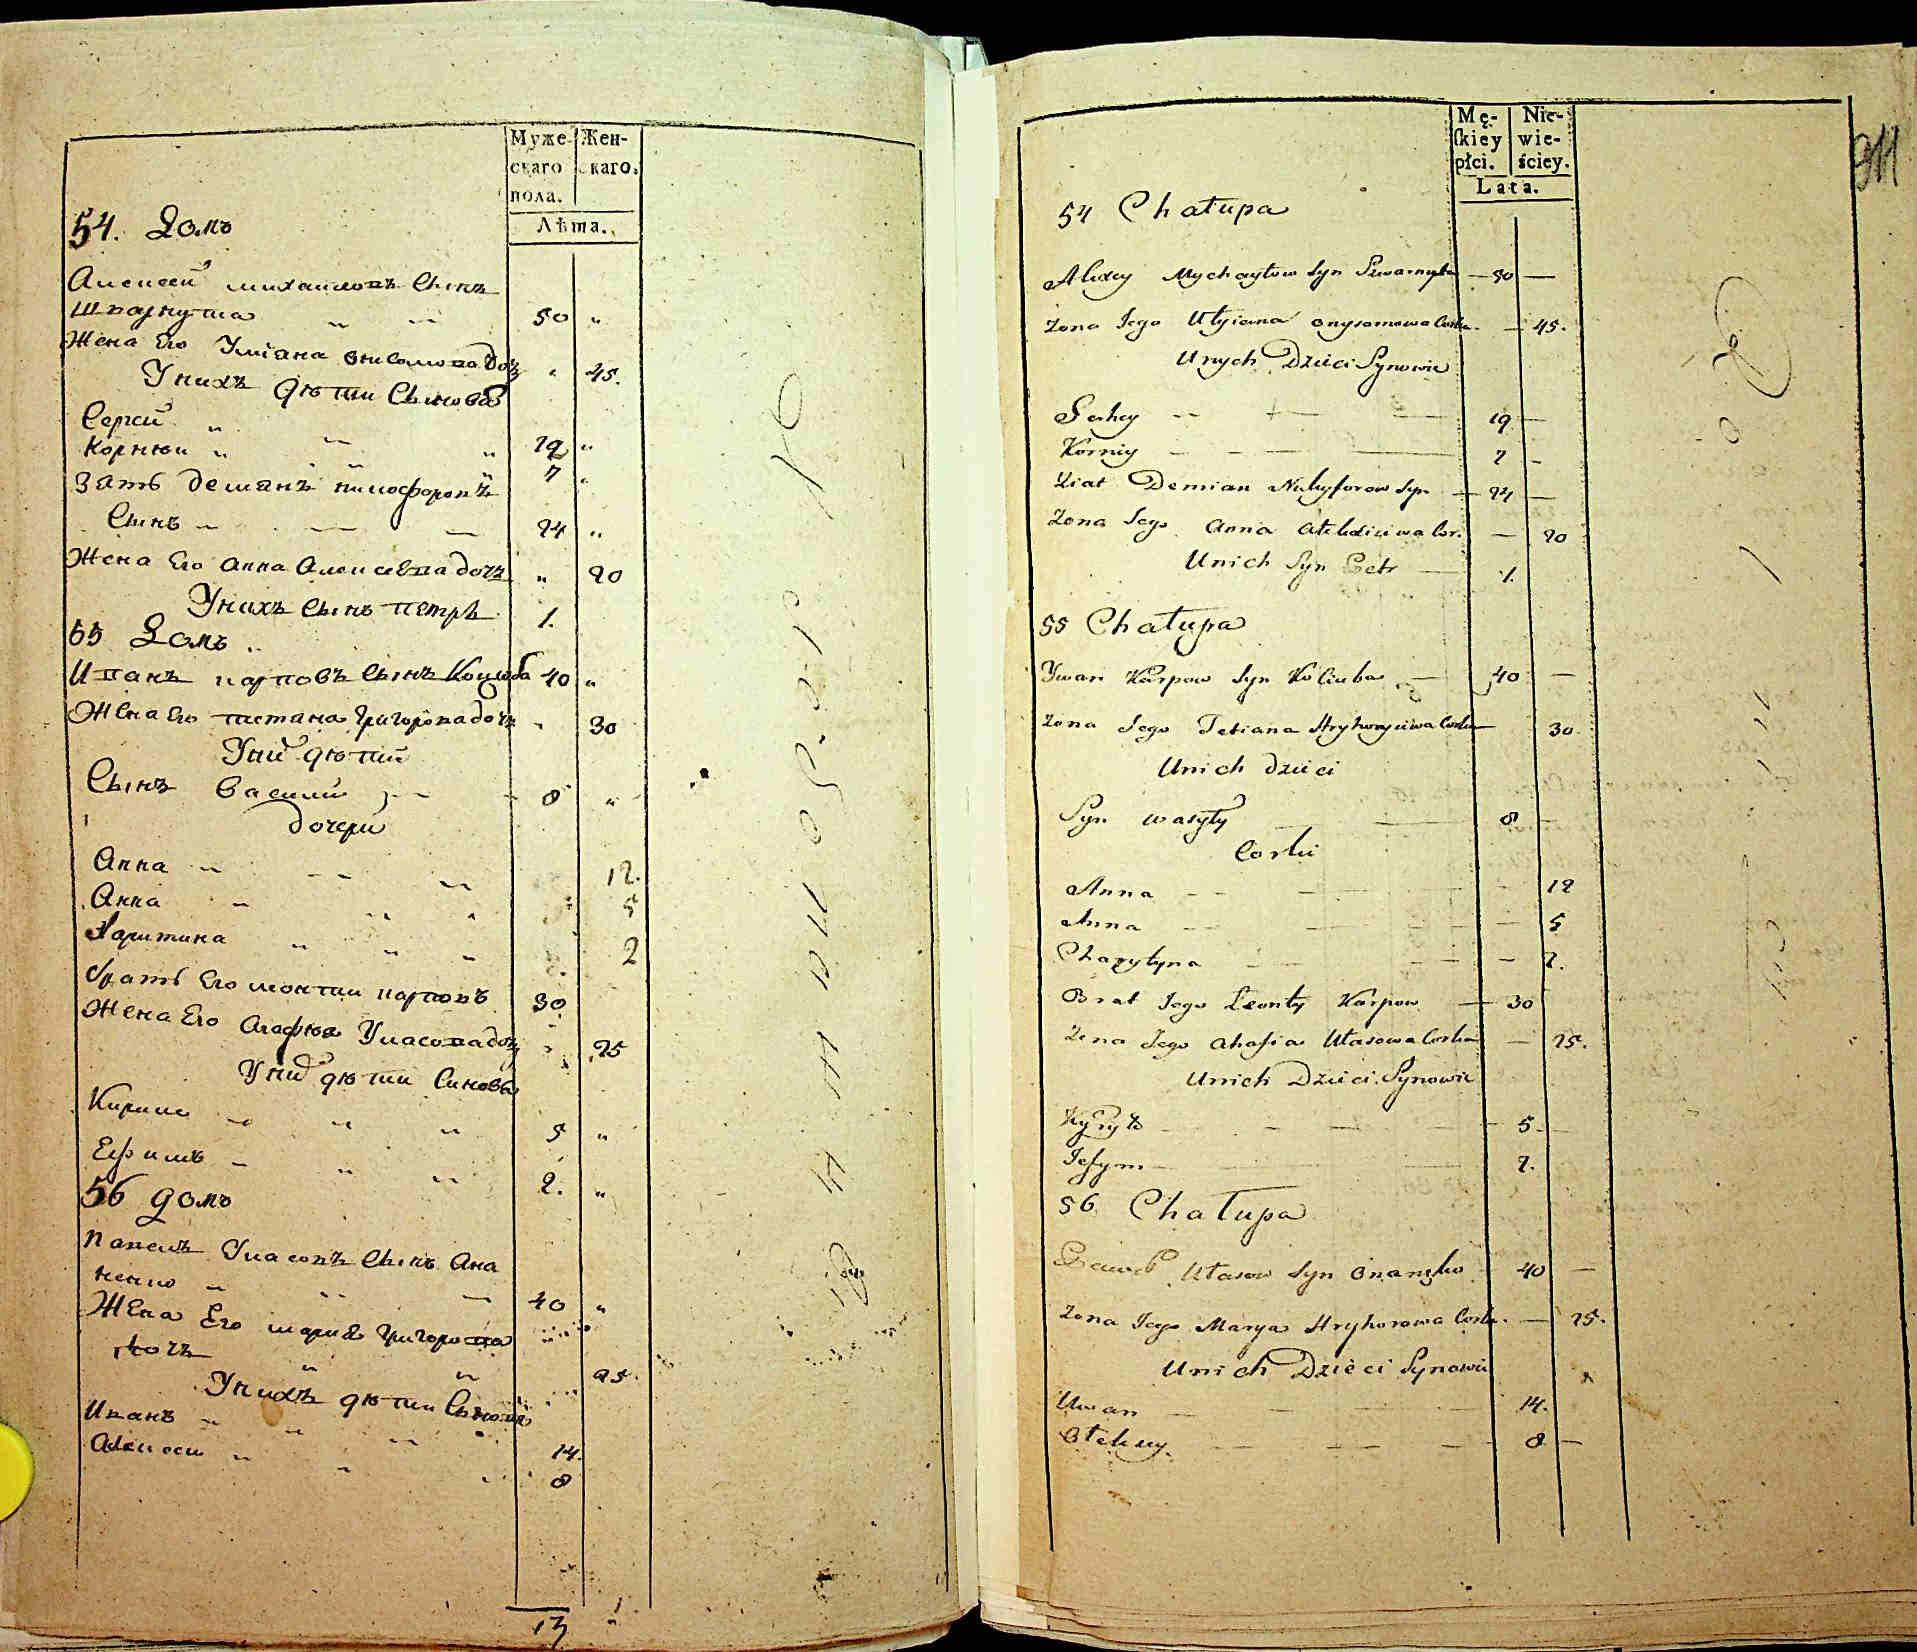 Муже- Жен-
скаго скаго.
пола.
Лѣта.
54. Домъ
Алексей михаиловъ Сынъ
Шварнута 50
Жена Его Улiана онисимова доч 45.
Унихъ дѣти Синовя
Сергей 19
Корней 7
Зять демянъ никифоровъ
Сынъ 24
Жена Его Анна Алексеева дочъ 20
Унихъ Сынъ петръ 1.
55 Домъ
Иванъ карповъ Сынъ Коцюба 40
Жена Его татяна григорова дочъ 30
Уни дѣтии
Сынъ Василий 8
дочери
Анна 12.
Анна 5
Харитина 2
братъ Его леонтии карповъ 30
Жена Его Агафия Уласова доч 25
Уни дѣтии Синовя
Кирило 5
Ефимъ 2.
56 домъ
Павелъ Уласовъ Сынъ Ана
ненко 40
Жена Его мария григорова
дочъ 25.
Унихъ дѣтии Сынови
Иванъ 14.
Алексеи 8
13
Mę- Nie-
skiey wie-
płci. ściey.
Lata.
54 Chałupa
Alexey Mychayłow Syn Szwarnuta 50
Zona Jego Ulyiana onysomowa Corka 45.
Unych Dzieci Synowie
Serhey 19
Korniy 7
Ziat Demian Nykyforow Syn 24
Zona Jego Anna Alexieiewa Cor. 20
Unich Syn Petr 1.
55 Chałupa
Ywan Karpow Syn Kociuba 40
Zona Jego Tetiana Hryhoryiewa Corka 30
Unich dzieci
Syn wasyly 8
Corki
Anna 12
Anna 5
Charytyna 2.
Brat Jego Leonty Karpow 30
Zona Jego Ahafia Ułasowa Corka 25.
Unich Dzieci Synowie
Kyryło 5
Jefym 2.
56 Chałupa
Pawel Ułasow Syn Onanęko 40
Zona Jego Marya Hryhorowa Corka. 25.
Unich Dzieci Synowie
Iwan 14.
Ołeksey 8